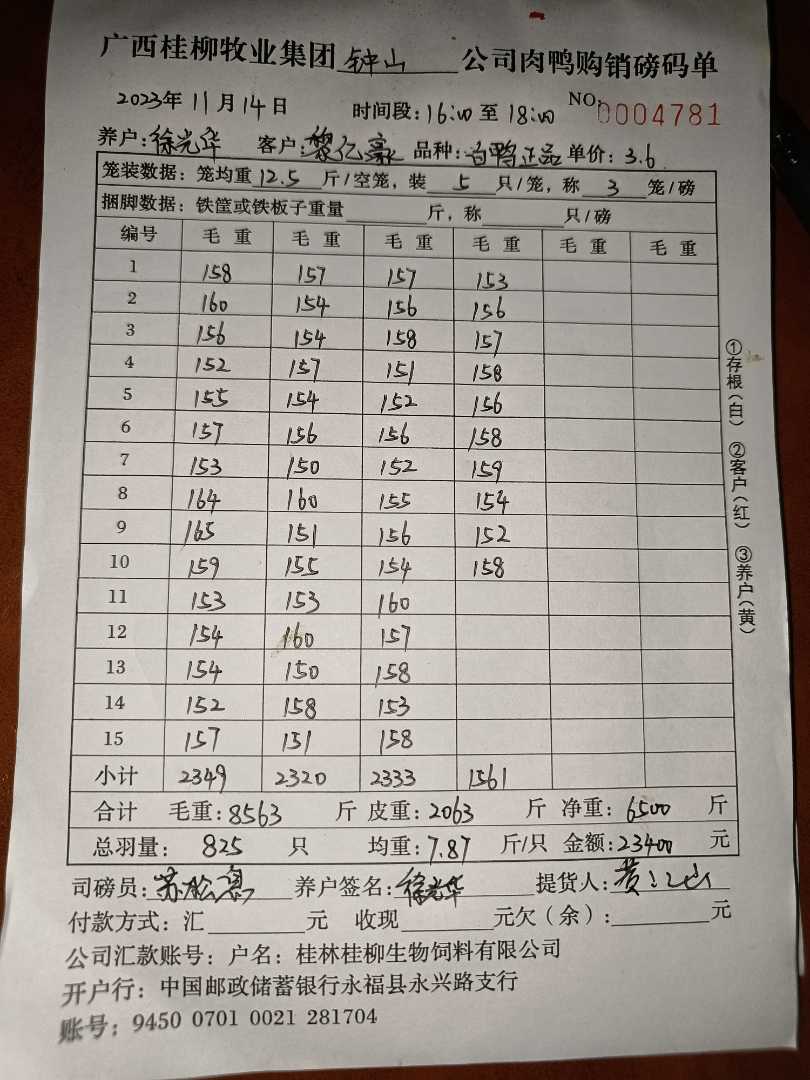 广西桂柳牧业集团 钟山 公司肉鸭购销磅码单
2023年 11月 14日 时间段: 16:00 至 18:00 NO. 0004781
养户: 徐光华 客户: 黎亿豪 品种: 白鸭正品 单价: 3.6
笼装数据: 笼均重 12.5 斤/空笼, 装 5 只/笼, 称 3 笼/磅
捆脚数据: 铁筐或铁板子重量 斤, 称 只/磅
编号 毛重 毛重 毛重 毛重 毛重 毛重
1 158 157 157 153
2 160 154 156 156
3 156 154 158 157
4 152 157 151 158
5 155 154 152 156
6 157 156 156 158
7 153 150 152 159
8 164 160 155 154
9 165 151 156 152
10 159 155 154 158
11 153 153 160
12 154 160 157
13 154 150 158
14 152 158 153
15 157 151 158
小计 2349 2320 2333 1561
合计 毛重: 8563 斤 皮重: 2063 斤 净重: 6500 斤
总羽量: 825 只 均重: 7.87 斤/只 金额: 23400 元
司磅员: 养户签名: 徐光华 提货人:
付款方式: 汇 元 收现 元欠(余): 元
公司汇款账号: 户名: 桂林桂柳生物饲料有限公司
开户行: 中国邮政储蓄银行永福县永兴路支行
账号: 9450 0701 0021 281704
①存根(白) ②客户(红) ③养户(黄)